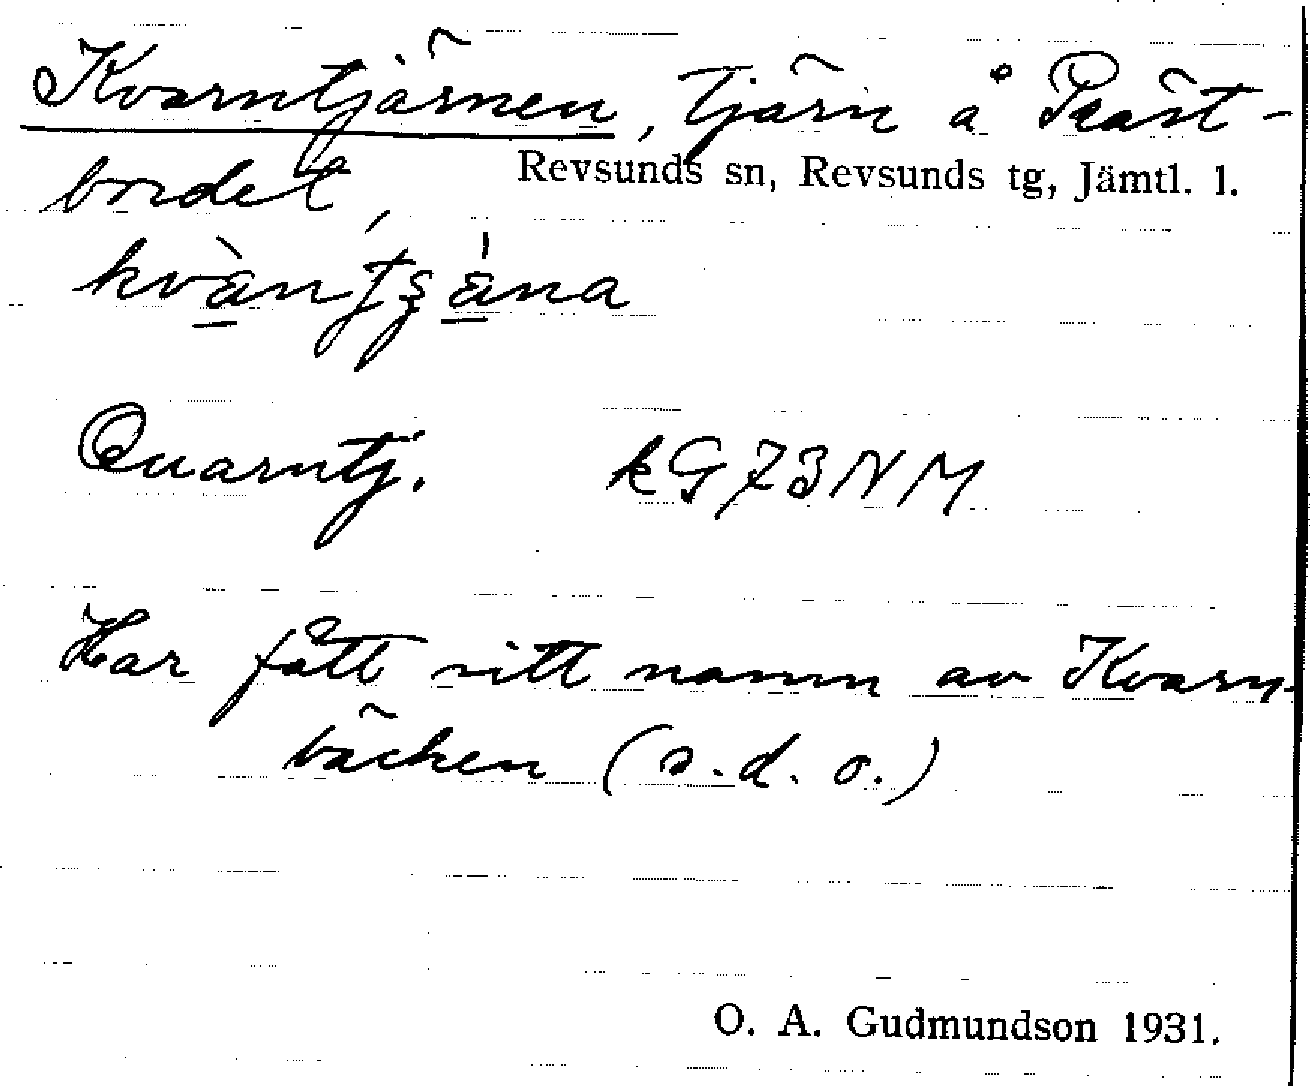 Kvarntjärnen, tjärn å Präst-
bordet,
Revsunds sn, Revsunds tg, Jämtl. l.
Quarntj. kG73NM
Har fått sitt namn av Kvarn-
bäcken (s.d.o.)
O. A. Gudmundson 1931.